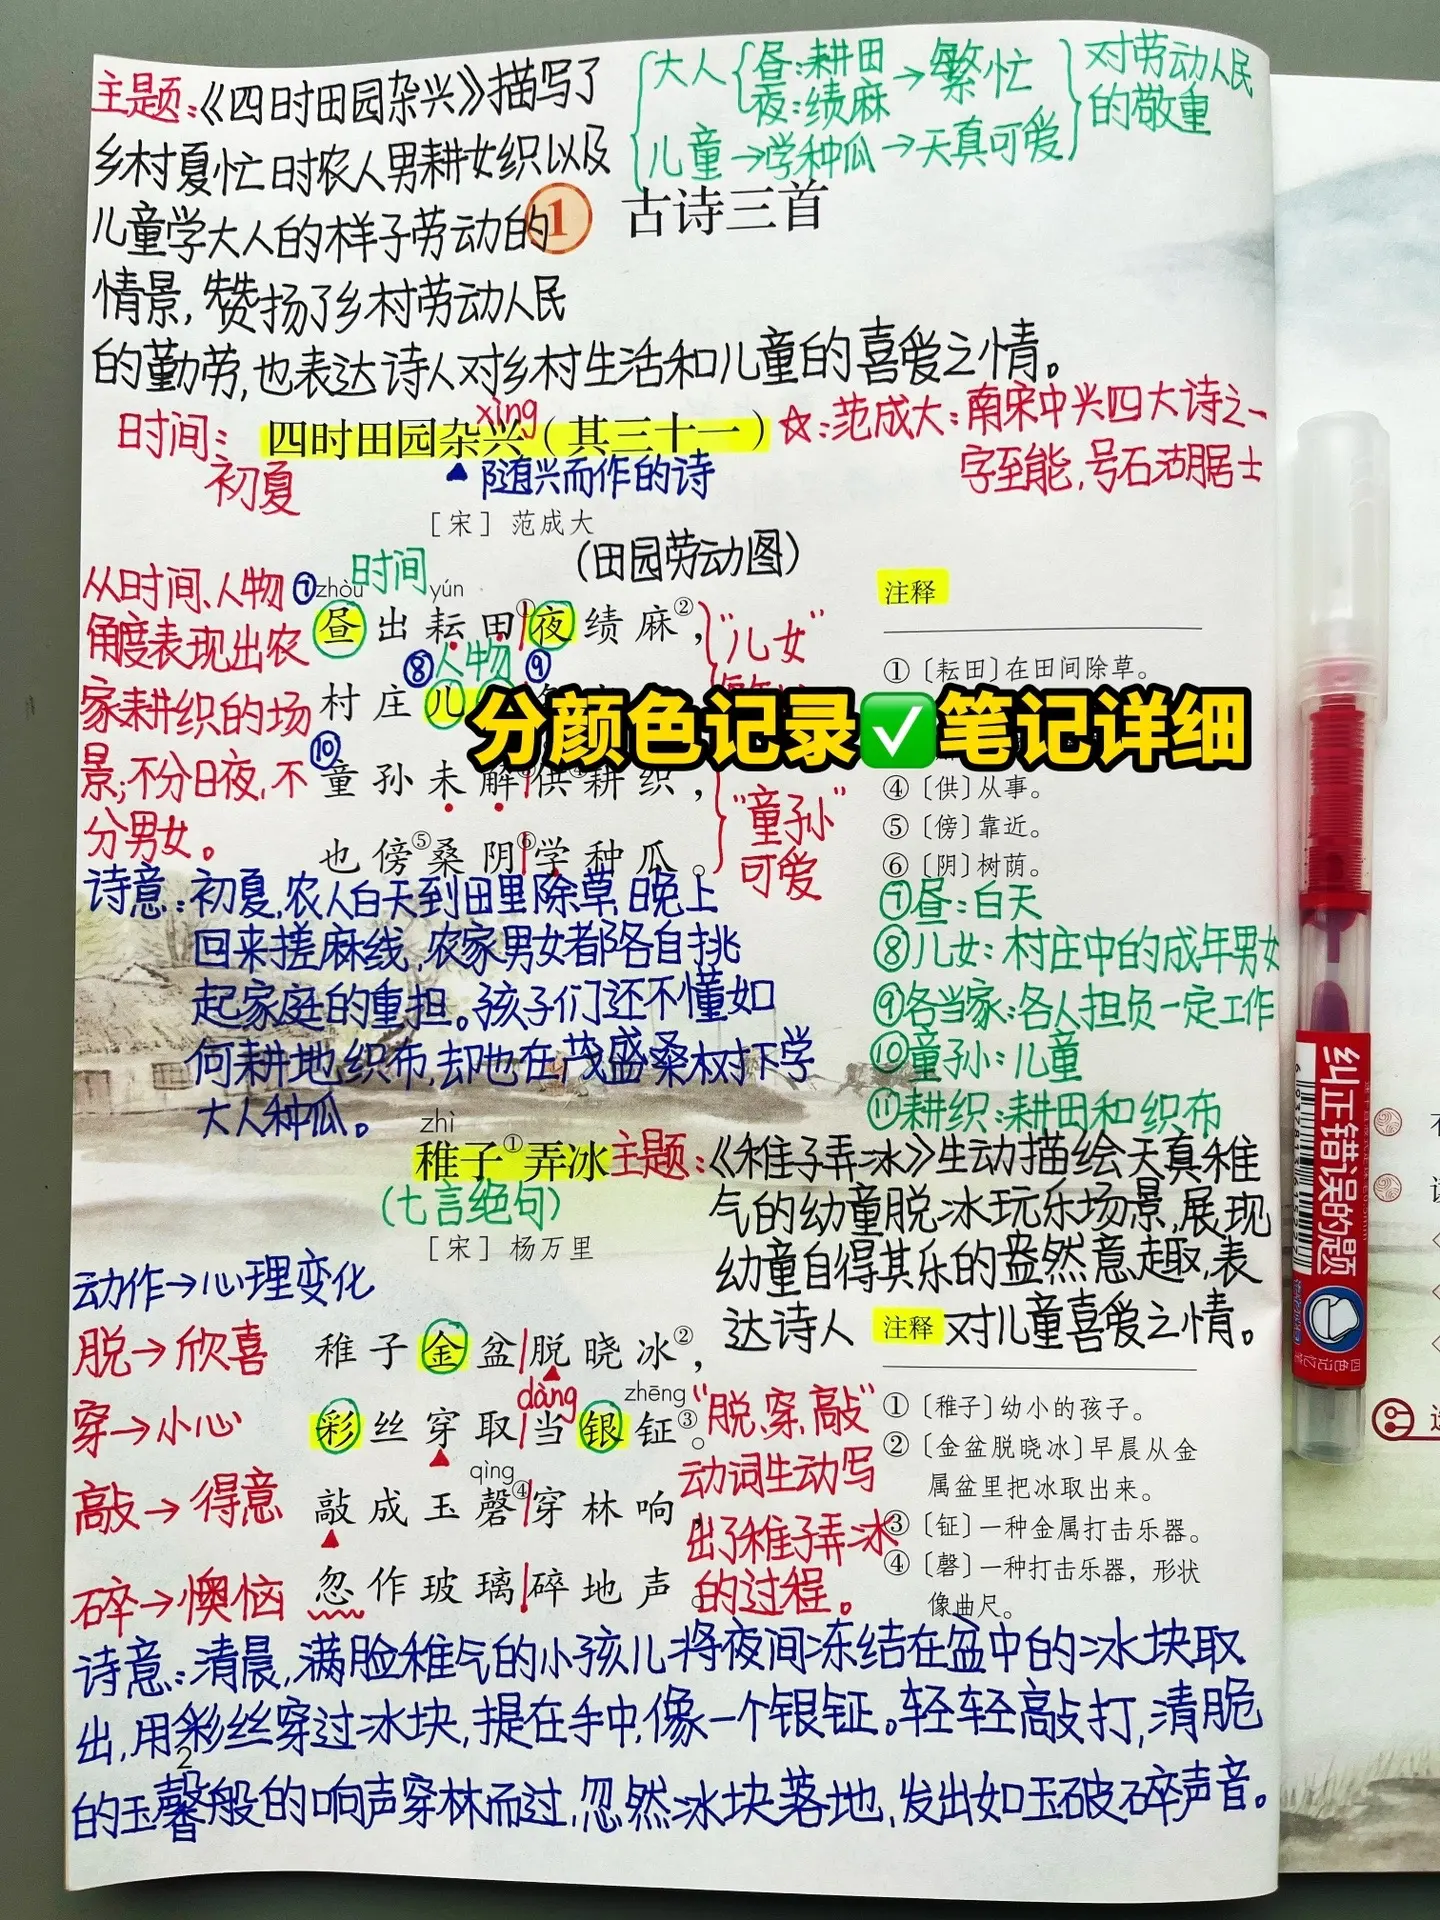 主题:《四时田园杂兴》描写了
乡村夏忙时农人男耕女织以及
儿童学大人的样子劳动的
情景,赞扬了乡村劳动人民
的勤劳,也表达诗人对乡村生活和儿童的喜爱之情。
大人
昼:耕田
夜:绩麻
→繁忙
儿童→学种瓜→天真可爱
对劳动人民
的敬重
1 古诗三首
时间:
初夏
xìng
四时田园杂兴(其三十一)
▲随兴而作的诗
☆:范成大:南宋中兴四大诗之一
字至能,号石湖居士
[宋] 范成大
(田园劳动图)
从时间、人物
角度表现出农
家耕织的场
景;不分日夜,不
分男女。
时间
⑦zhòu yún
昼出耘田①夜绩麻②,
⑧人物 ⑨
村庄儿
⑩
童孙未解③供④耕织,
也傍⑤桑阴⑥学种瓜。
"儿女"
"童孙"
可爱
分颜色记录✅笔记详细
注释
①〔耘田〕在田间除草。
④〔供〕从事。
⑤〔傍〕靠近。
⑥〔阴〕树荫。
⑦昼:白天
⑧儿女:村庄中的成年男女
⑨各当家:各人担负一定工作
⑩童孙:儿童
⑪耕织:耕田和织布
诗意:初夏,农人白天到田里除草,晚上
回来搓麻线,农家男女都各自挑
起家庭的重担。孩子们还不懂如
何耕地织布,却也在茂盛桑树下学
大人种瓜。
zhì
稚子①弄冰
(七言绝句)
[宋] 杨万里
主题:《稚子弄冰》生动描绘天真稚
气的幼童脱冰玩乐场景,展现
幼童自得其乐的盎然意趣,表
达诗人对儿童喜爱之情。
动作→心理变化
脱→欣喜
穿→小心
敲→得意
碎→懊恼
稚子金盆脱晓冰②,
dàng zhēng
彩丝穿取当银钲③。
qìng
敲成玉磬④穿林响,
忽作玻璃碎地声。
"脱、穿、敲"
动词生动写
出了稚子弄冰
的过程。
注释
①〔稚子〕幼小的孩子。
②〔金盆脱晓冰〕早晨从金
属盆里把冰取出来。
③〔钲〕一种金属打击乐器。
④〔磬〕一种打击乐器,形状
像曲尺。
诗意:清晨,满脸稚气的小孩儿将夜间冻结在盆中的冰块取
出,用彩丝穿过冰块,提在手中,像一个银钲。轻轻敲打,清脆
的玉磬般的响声穿林而过,忽然冰块落地,发出如玉破碎声音。
2
纠正错误的题
四色记忆笔